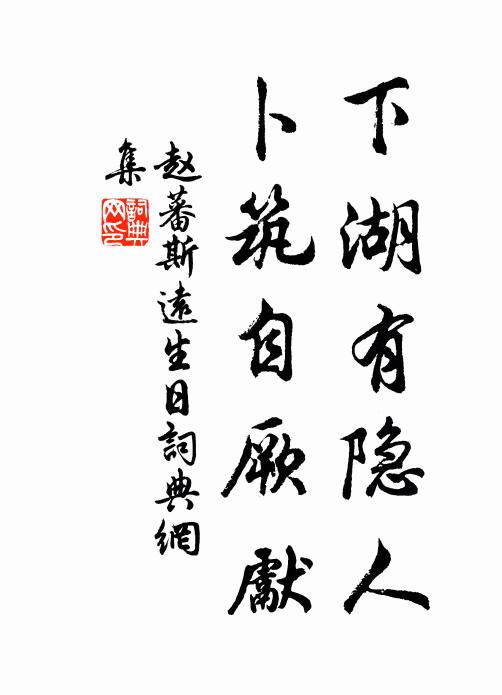 下湖有隐人
卜筑自厥獻
赵蕃斯遠生日詞典網
集
詞典網印